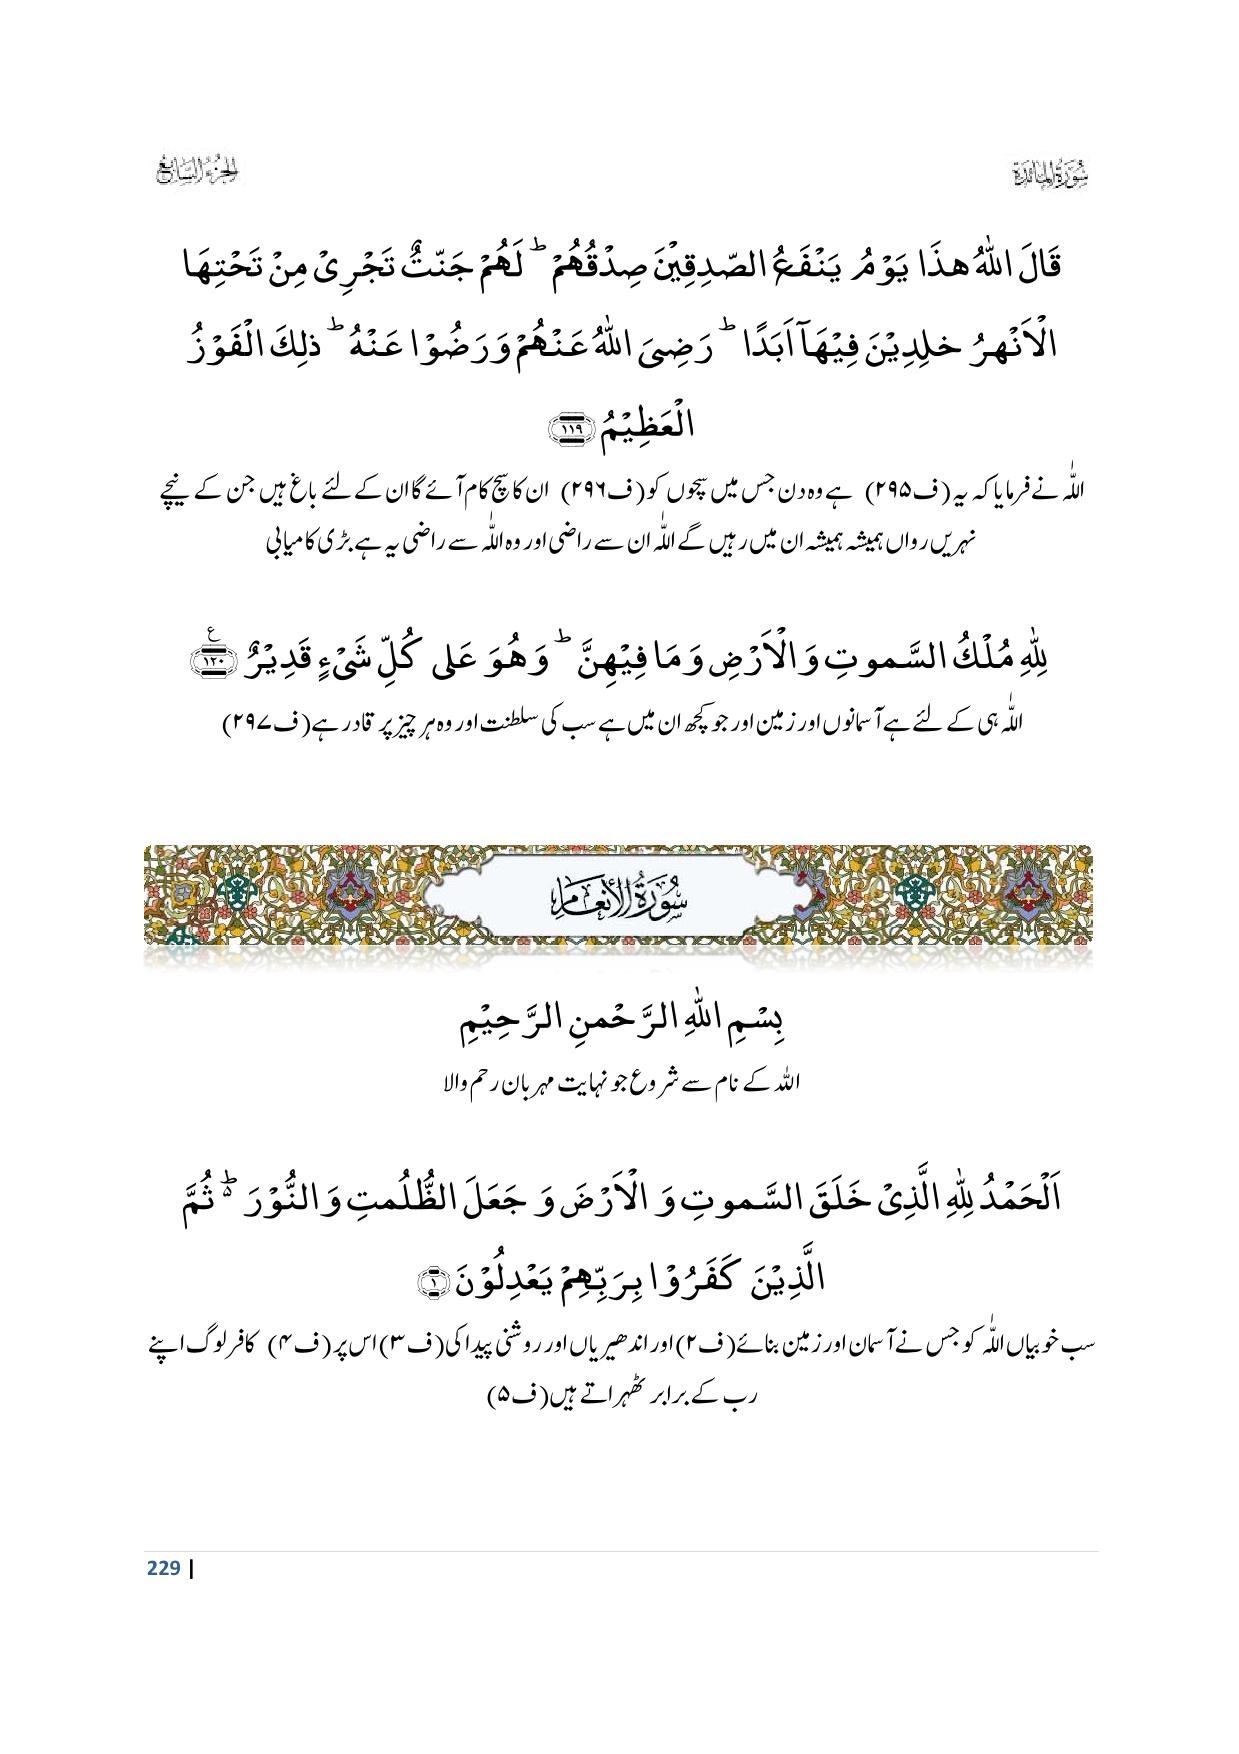 سُوْرَةُ المَائدة
الجزءُ السَّابِع
قَالَ اللّٰهُ هٰذَا یَوْمُ یَنْفَعُ الصّٰدِقِیْنَ صِدْقُهُمْ ؕ لَهُمْ جَنّٰتٌ تَجْرِیْ مِنْ تَحْتِهَا
الْاَنْهٰرُ خٰلِدِیْنَ فِیْهَاۤ اَبَدًا ؕ رَضِیَ اللّٰهُ عَنْهُمْ وَ رَضُوْا عَنْهُ ؕ ذٰلِكَ الْفَوْزُ
الْعَظِیْمُ ﴿۱۱۹﴾
اللّٰہ نے فرمایا کہ یہ (ف۲۹۵) ہے وہ دن جس میں سچوں کو (ف۲۹۶) ان کا سچ کام آئے گا ان کے لئے باغ ہیں جن کے نیچے
نہریں رواں ہمیشہ ہمیشہ ان میں رہیں گے اللّٰہ ان سے راضی اور وہ اللّٰہ سے راضی یہ ہے بڑی کامیابی
لِلّٰهِ مُلْكُ السَّمٰوٰتِ وَ الْاَرْضِ وَ مَا فِیْهِنَّ ؕ وَ هُوَ عَلٰی كُلِّ شَیْءٍ قَدِیْرٌ ﴿۱۲۰﴾ ع
اللّٰہ ہی کے لئے ہے آسمانوں اور زمین اور جو کچھ ان میں ہے سب کی سلطنت اور وہ ہر چیز پر قادر ہے (ف۲۹۷)
سُوْرَةُ الْأَنْعَام
بِسْمِ اللّٰهِ الرَّحْمٰنِ الرَّحِیْمِ
اللّٰہ کے نام سے شروع جو نہایت مہربان رحم والا
اَلْحَمْدُ لِلّٰهِ الَّذِیْ خَلَقَ السَّمٰوٰتِ وَ الْاَرْضَ وَ جَعَلَ الظُّلُمٰتِ وَ النُّوْرَ ۬ؕ ثُمَّ
الَّذِیْنَ كَفَرُوْا بِرَبِّهِمْ یَعْدِلُوْنَ ﴿۱﴾
سب خوبیاں اللّٰہ کو جس نے آسمان اور زمین بنائے (ف۲) اور اندھیریاں اور روشنی پیدا کی (ف۳) اس پر (ف۴) کافر لوگ اپنے
رب کے برابر ٹھہراتے ہیں (ف۵)
229 |